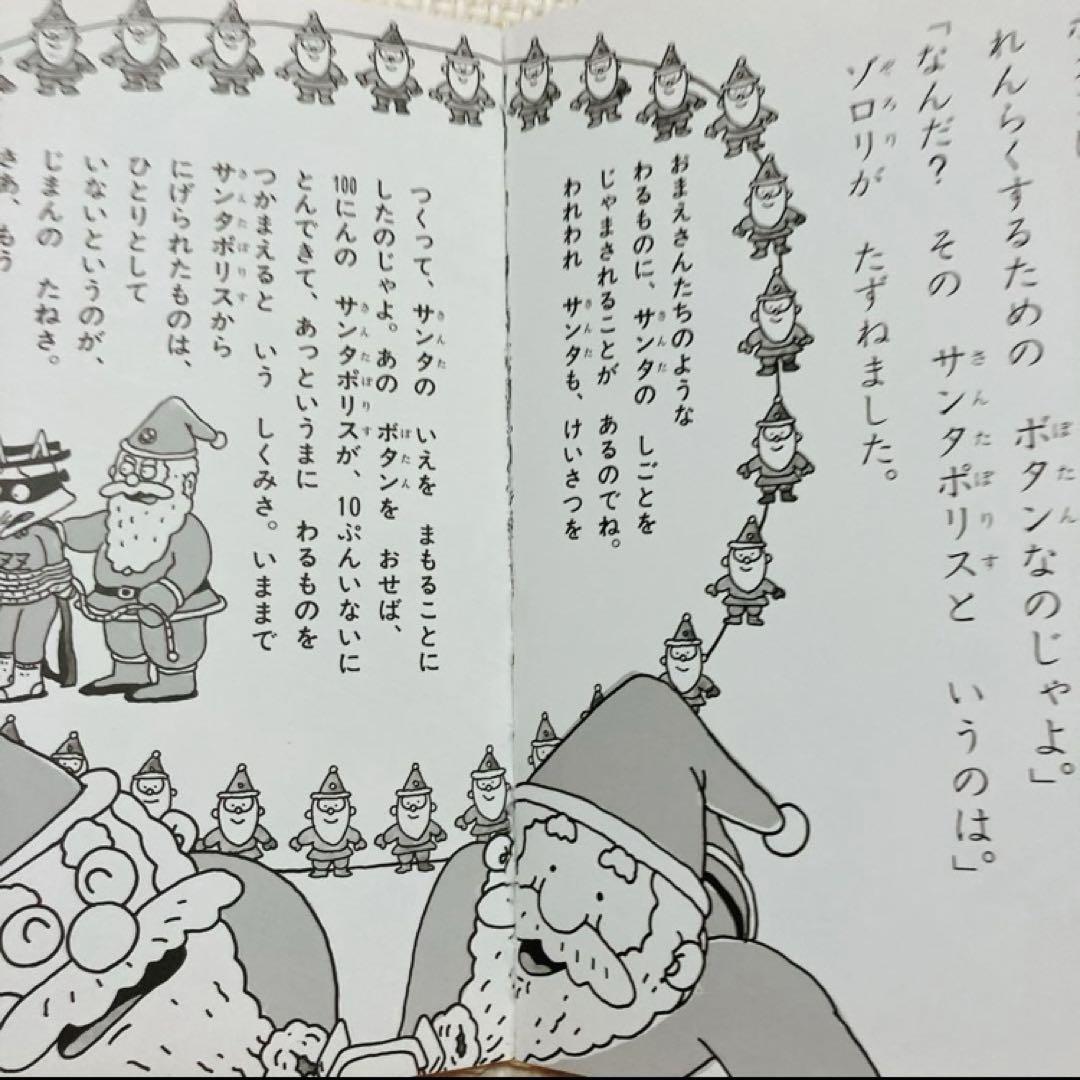 れんらくするための ボタンなのじゃよ。」
ぼたん
「なんだ? その サンタポリスと いうのは。」
さんたぽりす
ゾロリが たずねました。
ぞろり
おまえさんたちのような
わるものに、サンタの しごとを
さんた
じゃまされることが あるのでね。
われわれ サンタも、けいさつを
さんた
つくって、サンタの いえを まもることに
さんた
したのじゃよ。あの ボタンを おせば、
ぼたん
100にんの サンタポリスが、10ぷんいないに
さんたぽりす
とんできて、あっというまに わるものを
つかまえると いう しくみさ。いままで
サンタポリスから
さんたぽりす
にげられたものは、
ひとりとして
いないというのが、
じまんの たねさ。
さあ、もう